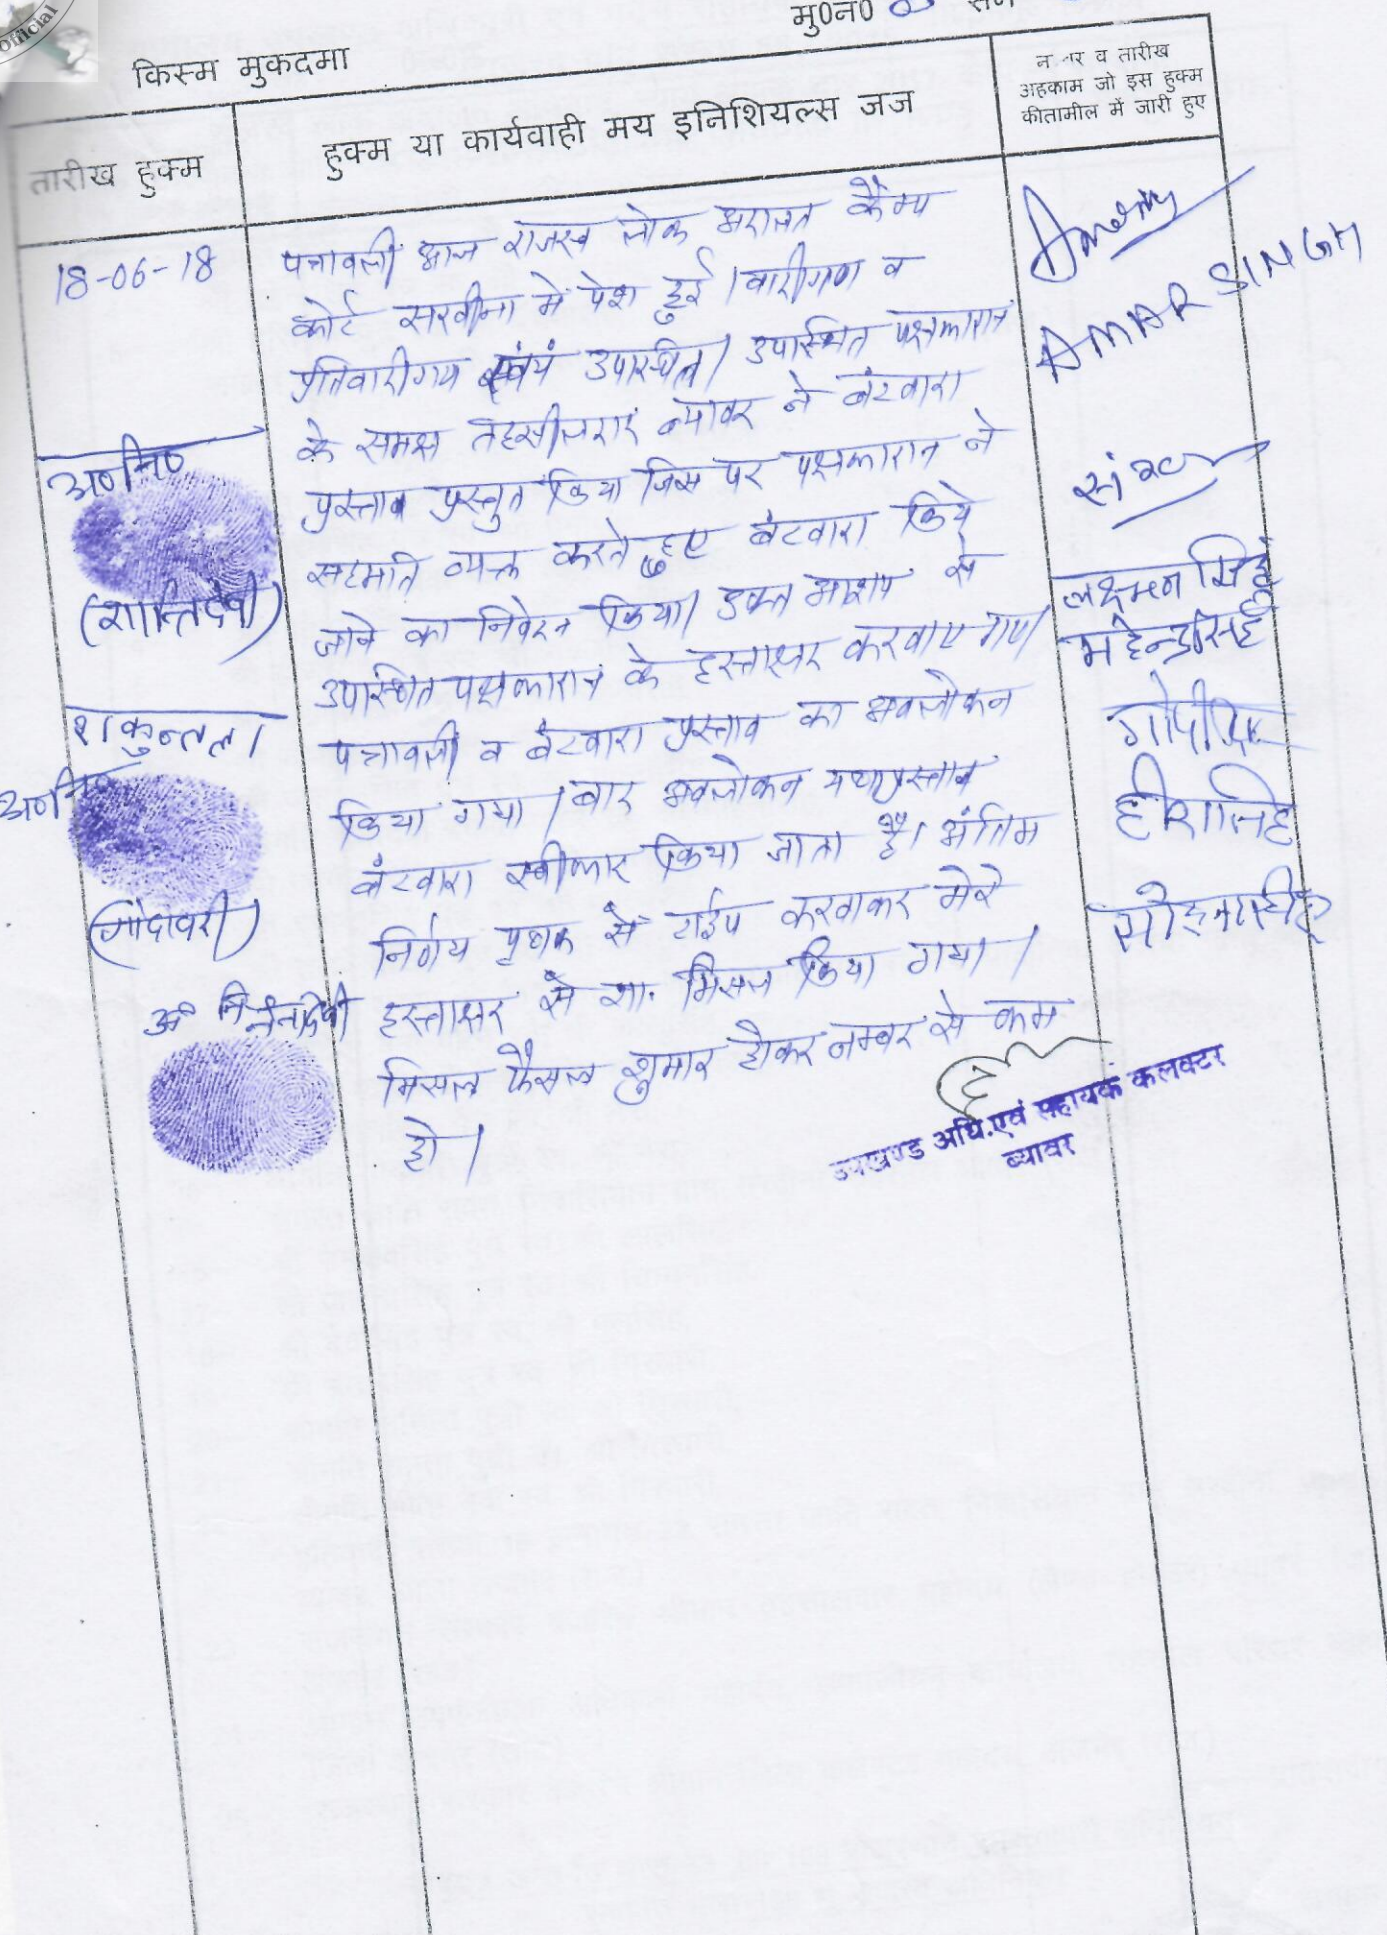 Official
मु0न0
किस्म मुकदमा
तारीख हुक्म
हुक्म या कार्यवाही मय इनिशियल्स जज
नम्बर व तारीख
अहकाम जो इस हुक्म
कीतामील में जारी हुए
18-06-18
पत्रावली आज राजस्व लोक अदालत कैम्प
कोर्ट सरवीना में पेश हुई। वादीगण व
प्रतिवादीगण स्वयं उपस्थित। उपस्थित पक्षकारान
के समक्ष तहसीलदार ब्यावर ने बंटवारा
प्रस्ताव प्रस्तुत किया जिस पर पक्षकारान ने
सहमति व्यक्त करते हुए बंटवारा किये
जाने का निवेदन किया। उक्त आशय से
उपस्थित पक्षकारान के हस्ताक्षर करवाए गए।
पत्रावली व बंटवारा प्रस्ताव का अवलोकन
किया गया। बाद अवलोकन यथाप्रस्ताव
बंटवारा स्वीकार किया जाता है। अंतिम
निर्णय पृथक से टाईप करवाकर मेरे
हस्ताक्षर से शा. मिसल किया गया।
मिसल फैसल शुमार होकर नम्बर से कम
हो।
उपखण्ड अधि.एवं सहायक कलक्टर
ब्यावर
अ०नि०
(शान्तिदेवी)
शकुन्तला
अ०नि०
(गोदावरी)
अ नि
AMAR SINGH
लक्ष्मण सिंह
महेन्द्रसिंह
हीरासिंह